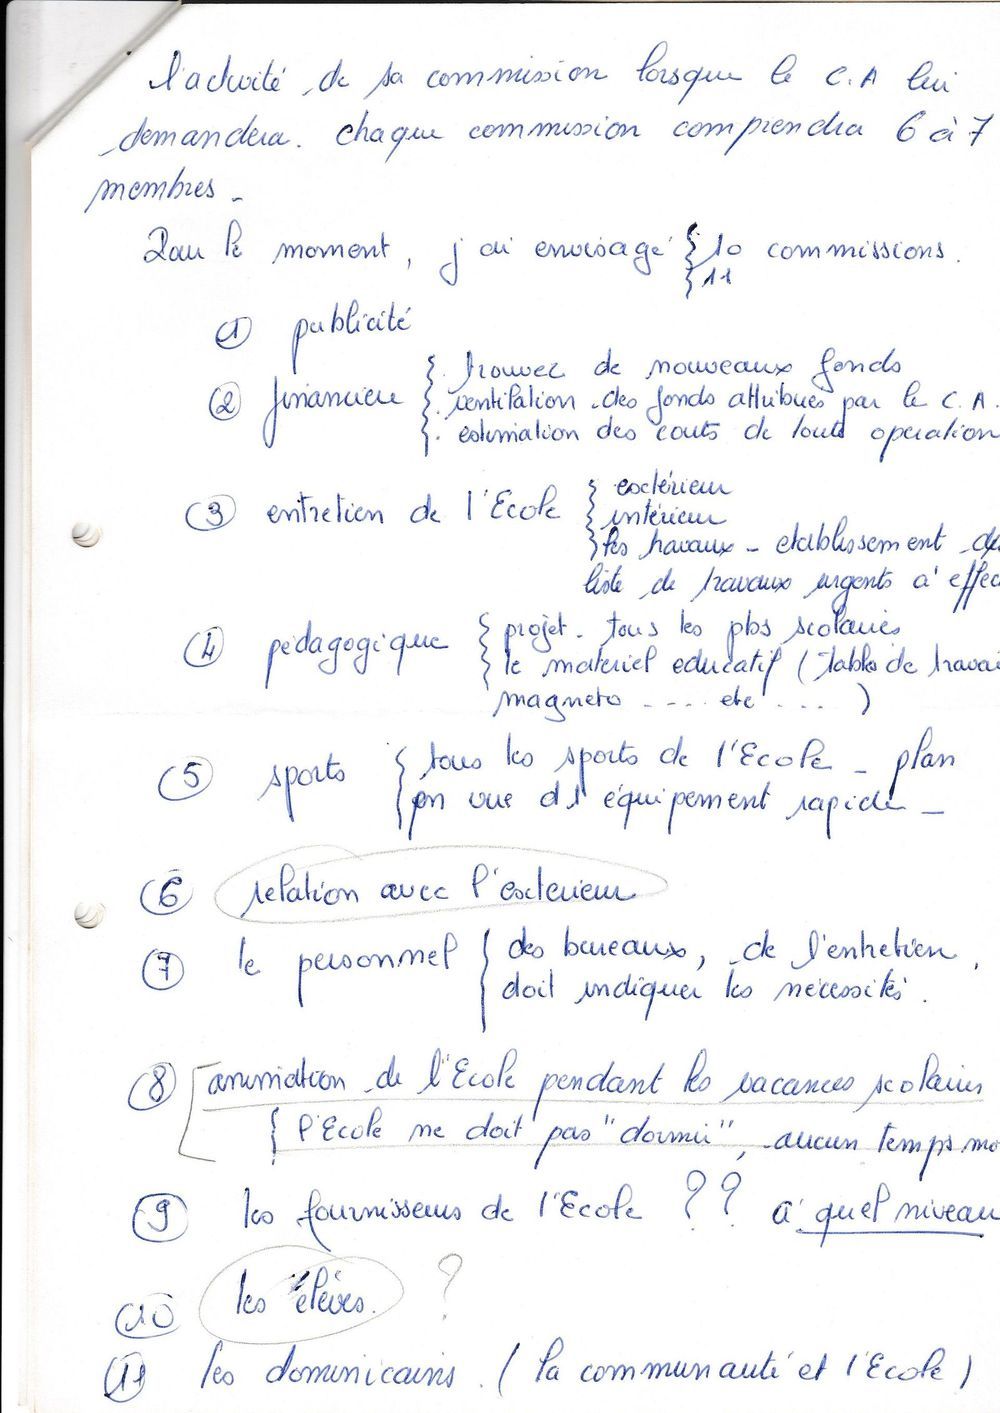 l'activité de sa commission lorsque le C.A lui
demandera. chaque commission comprendra 6 à 7
membres -
Pour le moment, j'ai envisagé { 10 commissions.
{ 11
① publicité
② financière { . trouver de nouveaux fonds
. ventilation des fonds attribués par le C.A.
. estimation des couts de toute operation
③ entretien de l'Ecole { extérieur
intérieur
les travaux - etablissement de
liste de travaux urgents à effec
④ pédagogique { projet. tous les pbs scolaires
le materiel educatif (tables de travai
magneto .... etc .... )
⑤ sports { tous les sports de l'Ecole - plan
en vue d'1 équipement rapide -
⑥ relation avec l'exterieur
⑦ le personnel { des bureaux, de l'entretien,
doit indiquer les nécessités.
⑧ animation de l'Ecole pendant les vacances scolaires
{ l'Ecole ne doit pas "dormir", aucun temps mo
⑨ les fournisseurs de l'Ecole ?? à quel niveau
⑩ les élèves. ?
⑪ les dominicains. (la communauté et l'Ecole)